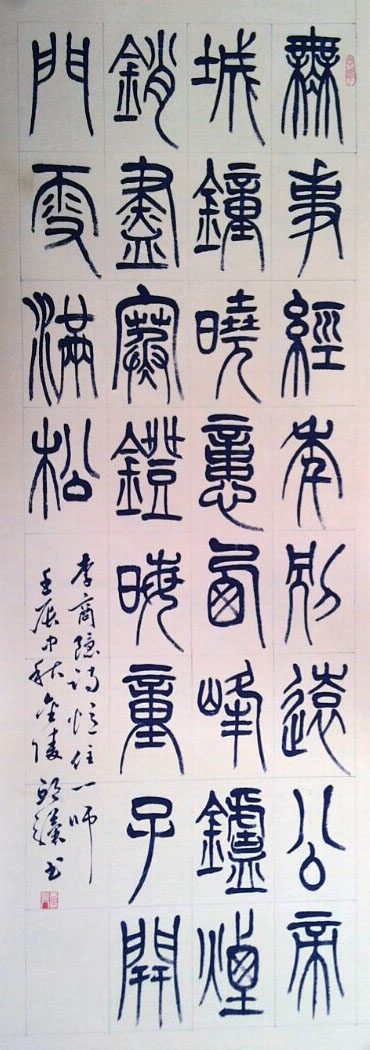 無事經年別遠公帝
城鐘曉憶西峰鑪煙
銷盡寒鐙晦童子開
門雪滿松
李商隐詩憶住一师
壬辰中秋金陵书